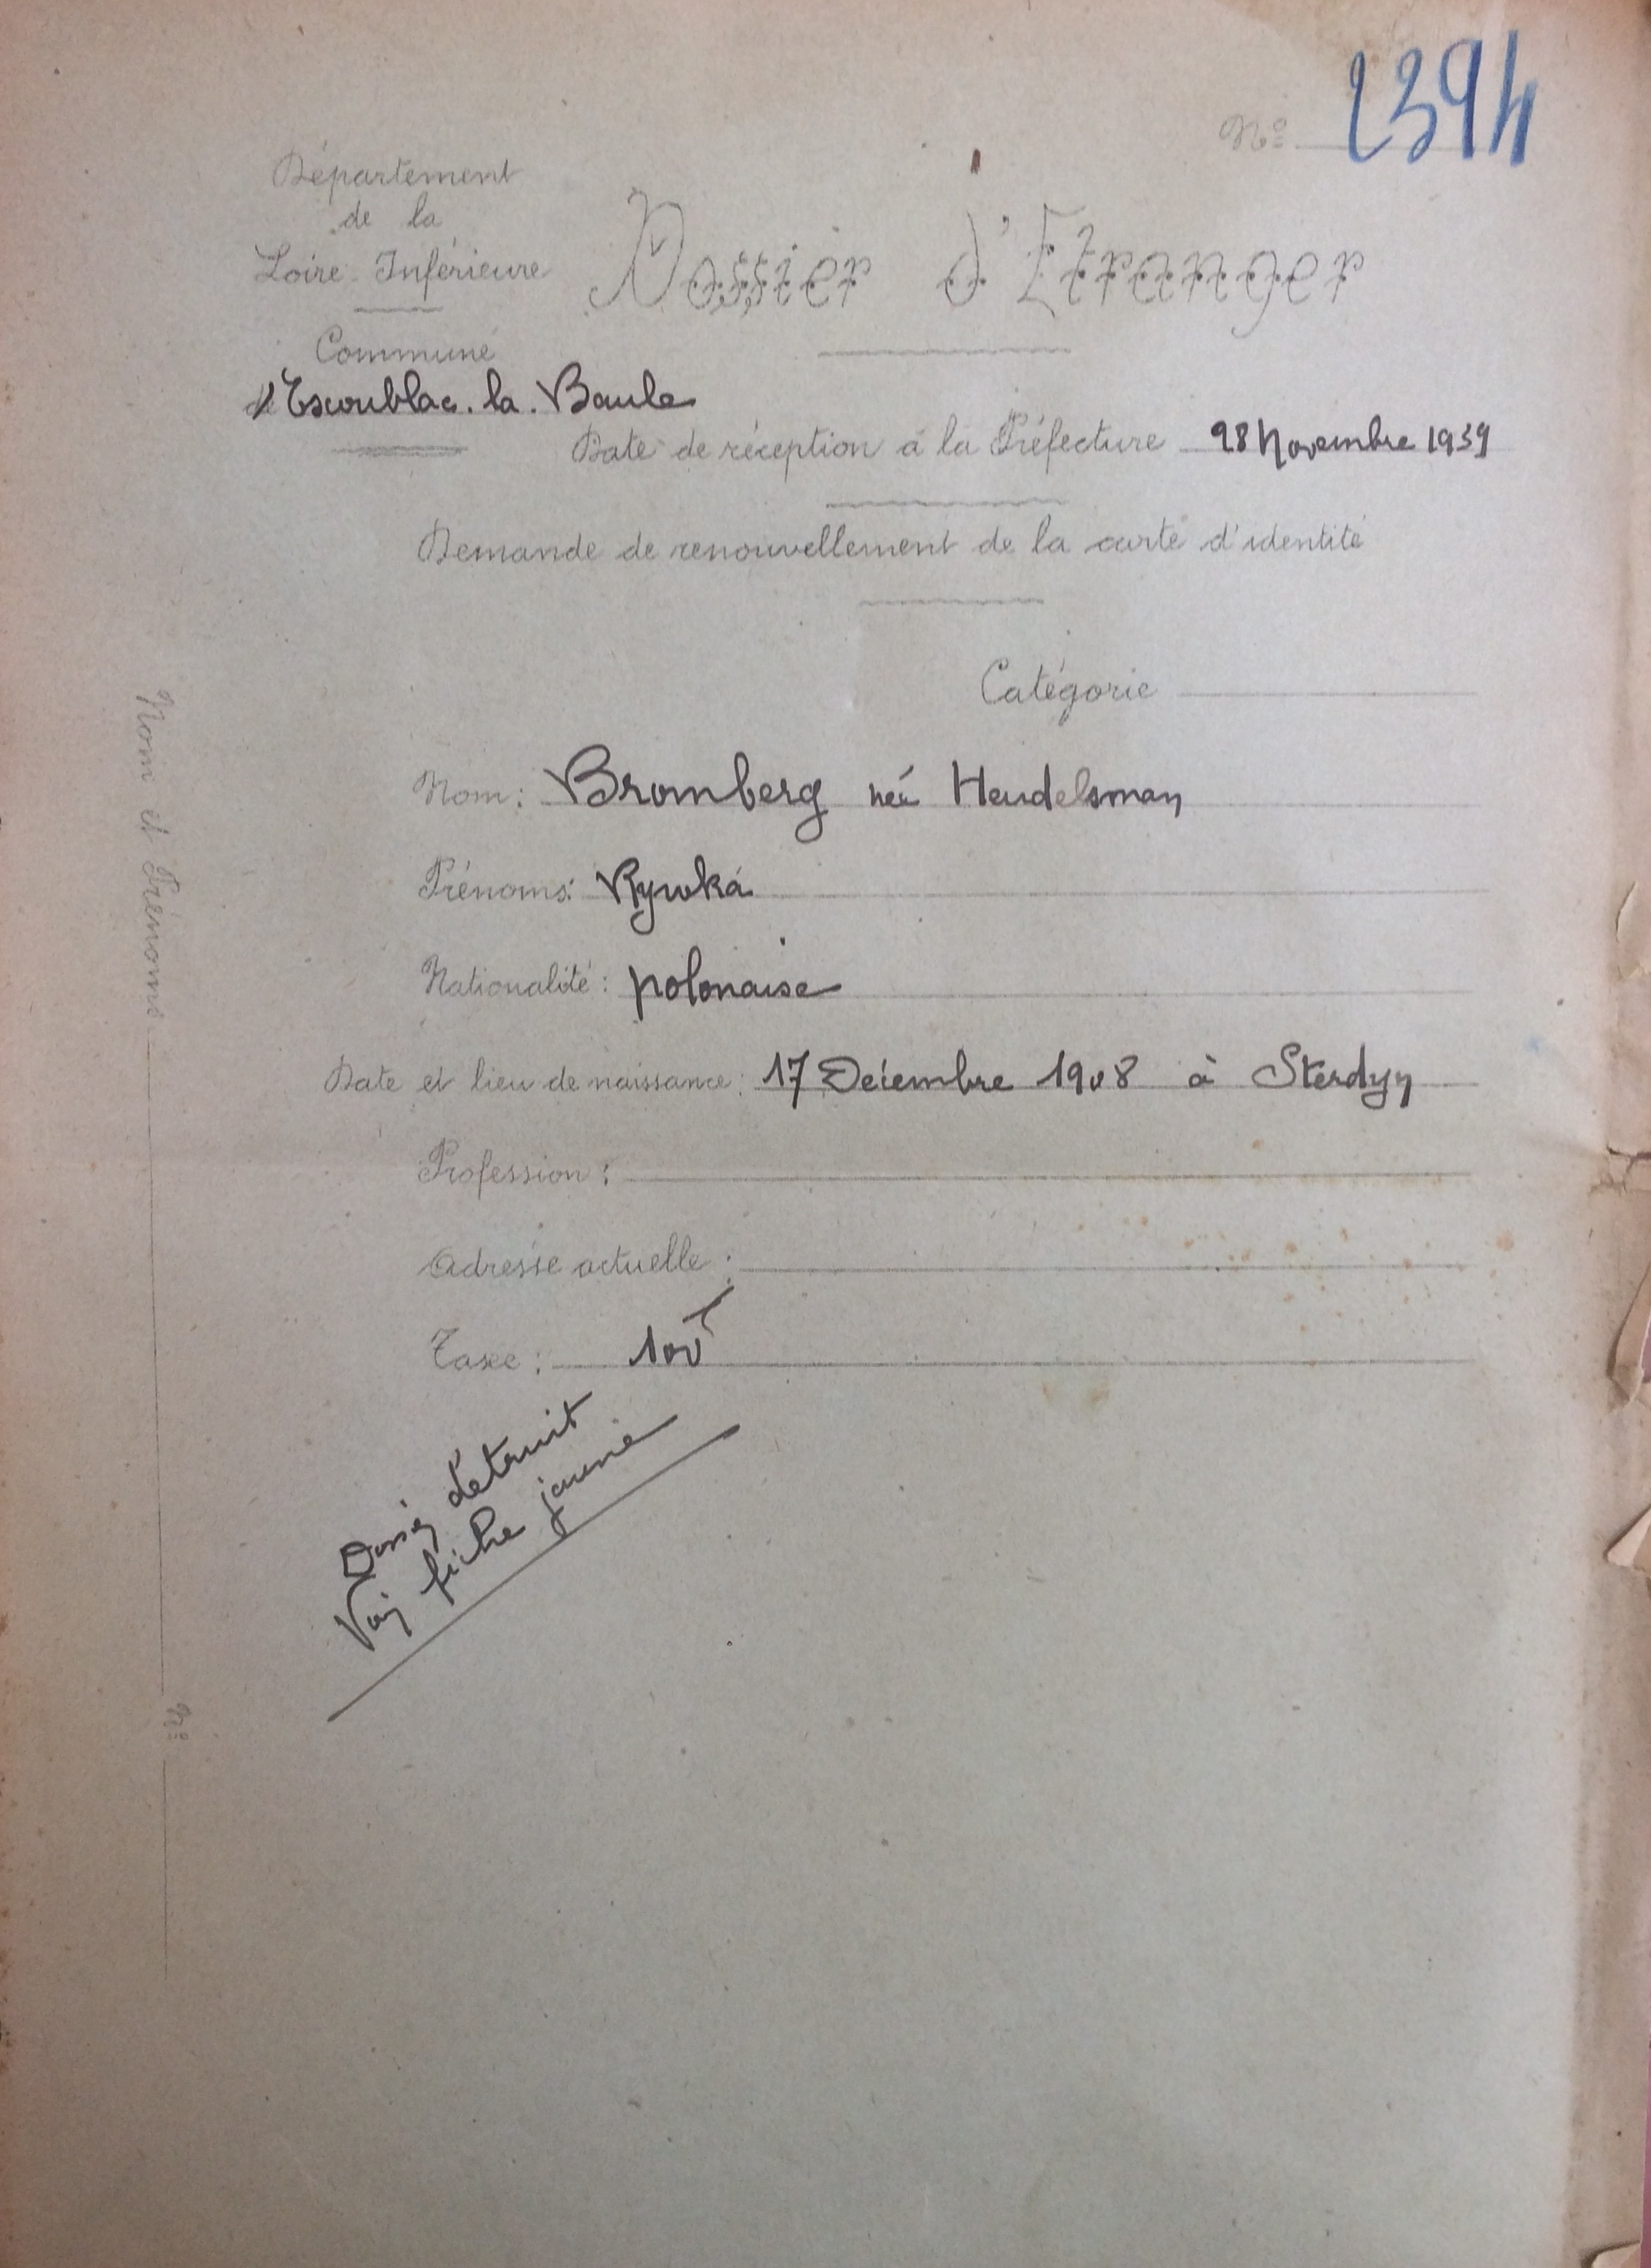 N° 2394
Département
de la
Loire-Inférieure
Dossier d'Etranger
Commune
d'Escoublac. la. Baule
Date de réception à la Préfecture 28 Novembre 1939
Demande de renouvellement de la carte d'identité
Catégorie
Nom: Bromberg née Hendelsman
Prénoms: Rywka
Nationalité: polonaise
Date et lieu de naissance: 17 Décembre 1908 à Sterdyn
Profession:
Adresse actuelle:
Taxe: 100F
Dossier détruit
Voir fiche jaune
Nom et Prénoms N°